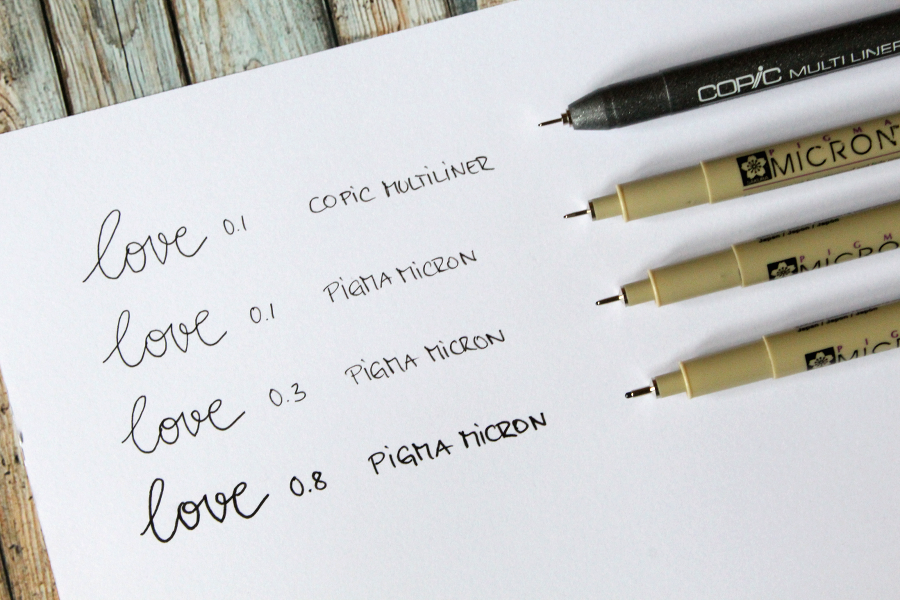 COPIC MULTI LINER
PIGMA
MICRON
love 0.1 COPIC MULTILINER
PIGMA
MICRON
love 0.1 PIGMA MICRON
PIGMA
MICRON
love 0.3 PIGMA MICRON
love 0.8 PIGMA MICRON